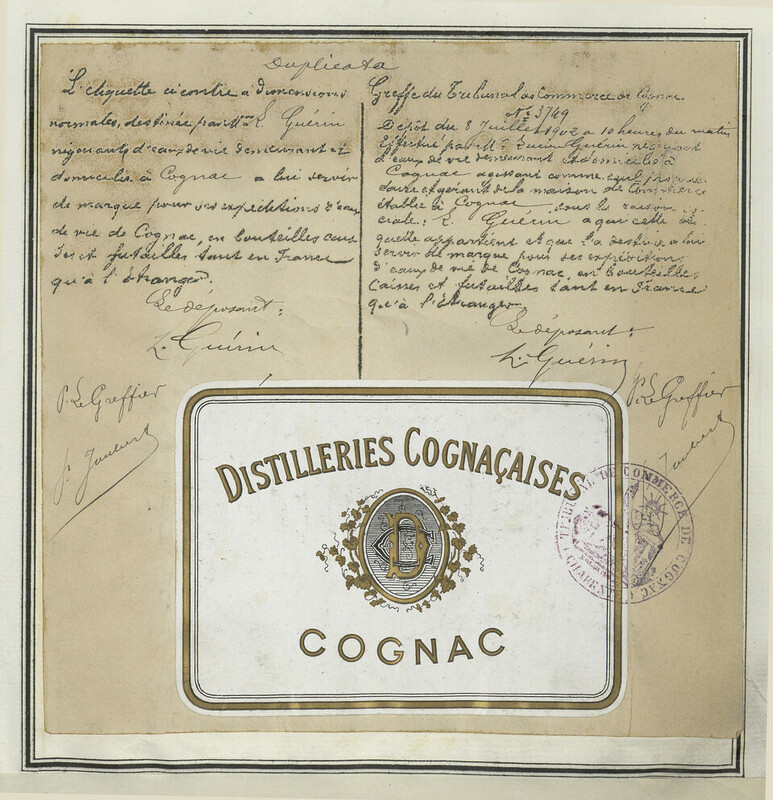 Duplicata
L'étiquette ci contre a dimensions
normales, destinée par Mr L. Guérin
négociant d'eaux de vie demeurant et
domicilié à Cognac a lui servir
de marque pour ses expéditions d'eau
de vie de Cognac, en bouteilles caisses
et futailles tant en France
qu'à l'étranger.
Le déposant:
L. Guérin
P. Le Greffier
P. Joubert
Greffe du Tribunal de Commerce de Cognac
No 3749
Dépôt du 8 Juillet 1902 a 10 heures du matin
Effectué par Mr Lucien Guérin négociant
d'eaux de vie demeurant et domicilié à
Cognac agissant comme seul propriétaire
et gérant de la maison de Commerce
établie à Cognac sous la raison
sociale: L. Guérin a qui cette étiquette
appartient et que l'a destinée a lui
servir de marque pour ses expéditions
d'eaux de vie de Cognac en bouteilles
Caisses et futailles tant en France
qu'à l'Etranger
Le déposant:
L. Guérin
P. Le Greffier
Joubert
DISTILLERIES COGNAÇAISES
DC
COGNAC
TRIBUNAL DE COMMERCE DE COGNAC
(CHARENTE)